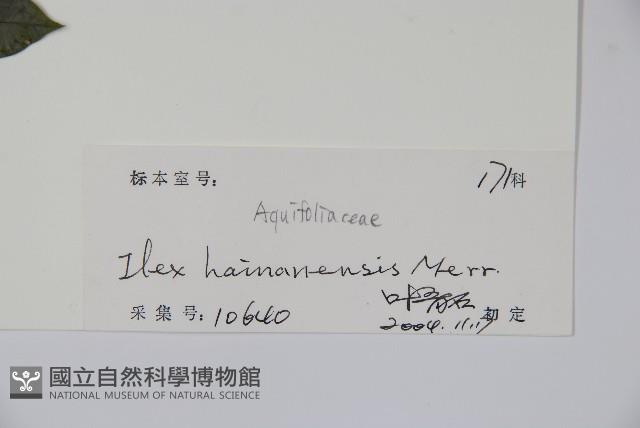 标本室号: 171科
Aquifoliaceae
Ilex hainanensis Merr.
采集号: 10640 初定
2004.11.17
國立自然科學博物館
NATIONAL MUSEUM OF NATURAL SCIENCE